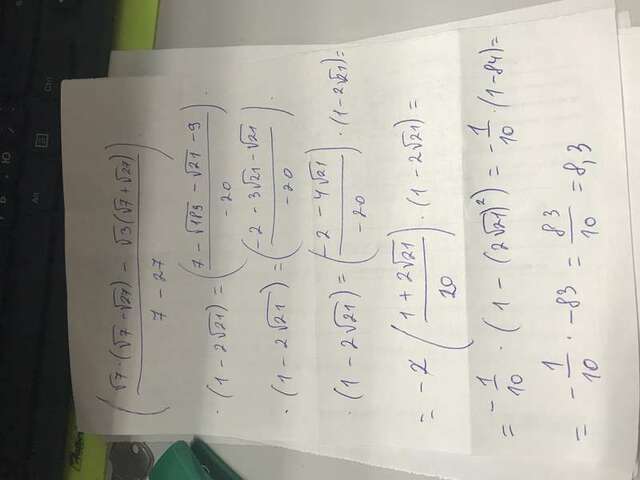 ( (√7·(√7 - √27) - √3(√7 + √27)) / (7 - 27) )
· (1 - 2√21) = ( (7 - √189 - √21 - 9) / -20 ) ·
· (1 - 2√21) = ( (-2 - 3√21 - √21) / -20 ) ·
· (1 - 2√21) = ( (-2 - 4√21) / -20 ) · (1 - 2√21) =
= -2 ( (1 + 2√21) / 20 ) · (1 - 2√21) =
= -1/10 · (1 - (2√21)²) = -1/10 · (1 - 84) =
= -1/10 · -83 = 83/10 = 8,3